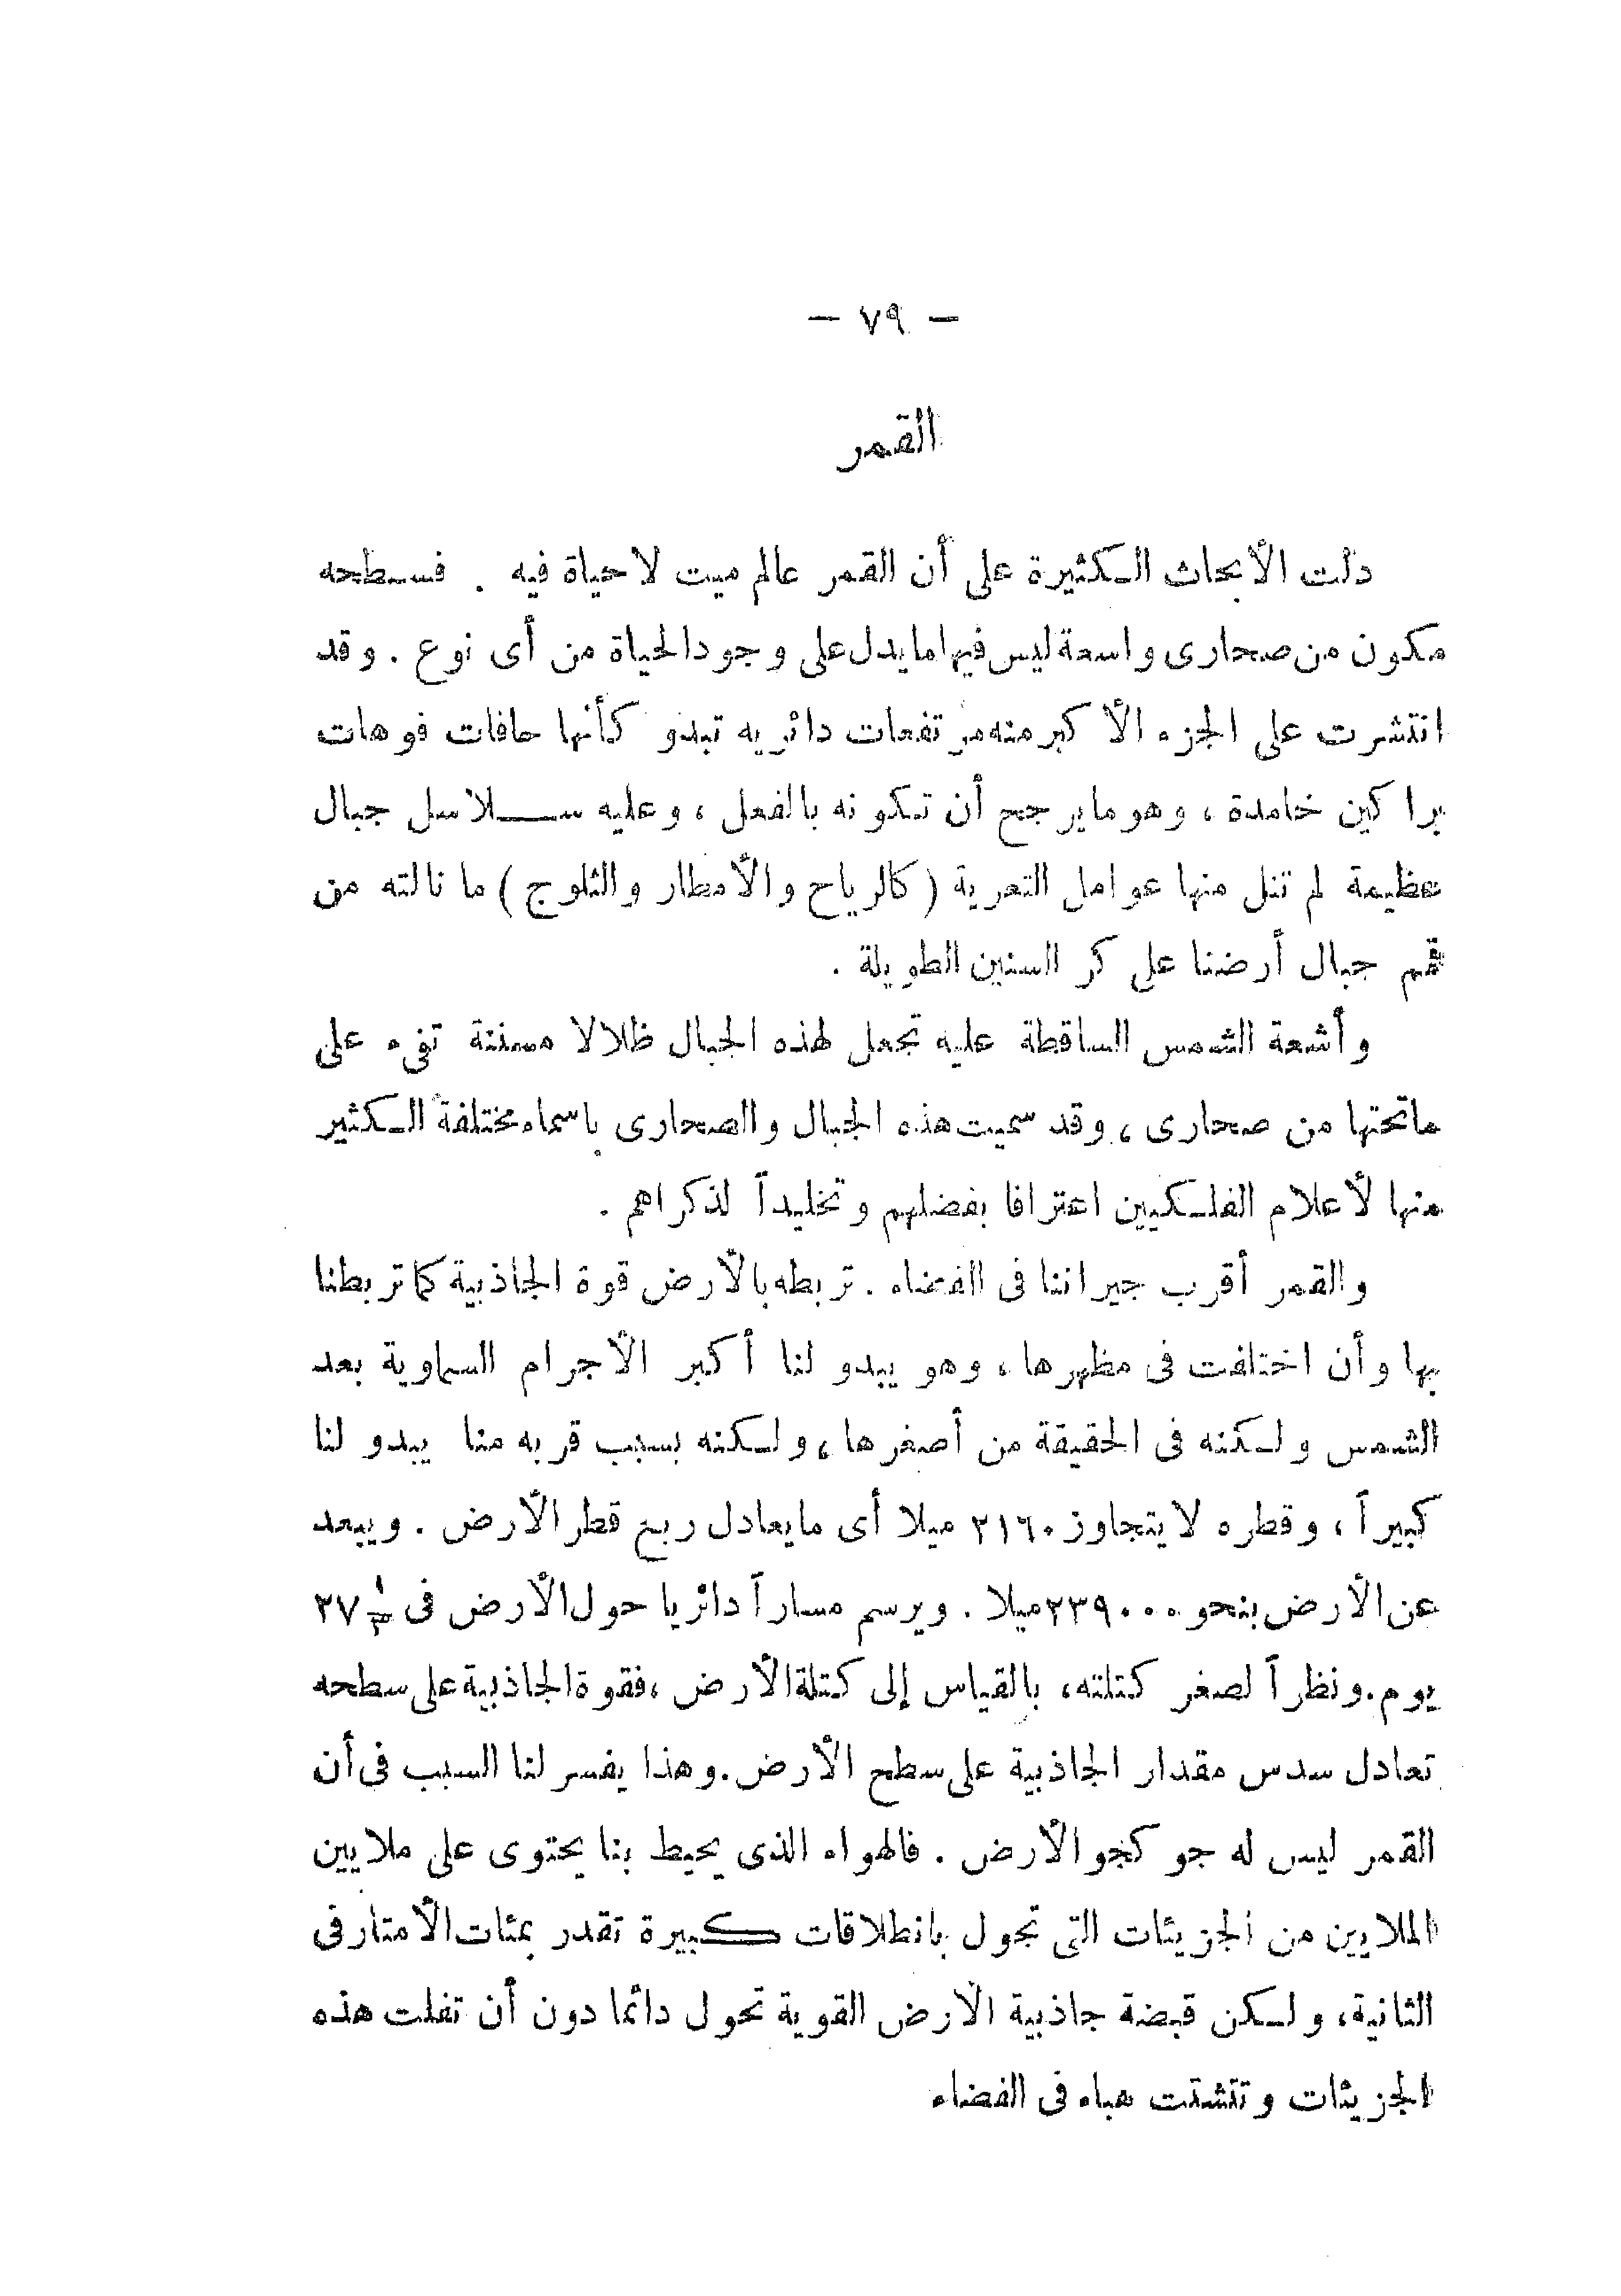 — ٧٩ —
القمر
دلت الأبحاث الكثيرة على أن القمر عالم ميت لا حياة فيه . فسطحه
مكون من صحارى واسعة ليس فيها ما يدل على وجود الحياة من أى نوع . وقد
انتشرت على الجزء الأكبر منه مرتفعات دائريه تبدو كأنها حافات فوهات
براكين خامدة ، وهو ما يرجح أن تكونه بالفعل ، وعليه سلاسل جبال
عظيمة لم تنل منها عوامل التعرية ( كالرياح والأمطار والثلوج ) ما نالته من
قمم جبال أرضنا على كر السنين الطويلة .
وأشعة الشمس الساقطة عليه تجعل لهذه الجبال ظلالا مسننة تفىء على
ماتحتها من صحارى ، وقد سميت هذه الجبال والصحارى باسماء مختلفة الكثير
منها لأعلام الفلكيين اعترافا بفضلهم وتخليداً لذكراهم .
والقمر أقرب جيراننا فى الفضاء . تربطه بالأرض قوة الجاذبية كما تربطنا
بها وأن اختلفت فى مظهرها ، وهو يبدو لنا أكبر الأجرام السماوية بعد
الشمس ولكنه فى الحقيقة من أصغرها ، ولكنه بسبب قربه منا يبدو لنا
كبيراً ، وقطره لا يتجاوز ٢١٦٠ ميلا أى ما يعادل ربع قطر الأرض . ويبعد
عن الأرض بنحو ٢٣٩٠٠٠ ميلا . ويرسم مساراً دائريا حول الأرض فى ٢٧ ١/٣
يوم . ونظراً لصغر كتلته ، بالقياس إلى كتلة الأرض ، فقوة الجاذبية على سطحه
تعادل سدس مقدار الجاذبية على سطح الأرض . وهذا يفسر لنا السبب فى أن
القمر ليس له جو كجو الأرض . فالهواء الذى يحيط بنا يحتوى على ملايين
الملايين من الجزيئات التى تجول بانطلاقات كبيرة تقدر بمئات الأمتار فى
الثانية ، ولكن قبضة جاذبية الأرض القوية تحول دائما دون أن تفلت هذه
الجزيئات وتتشتت هباء فى الفضاء